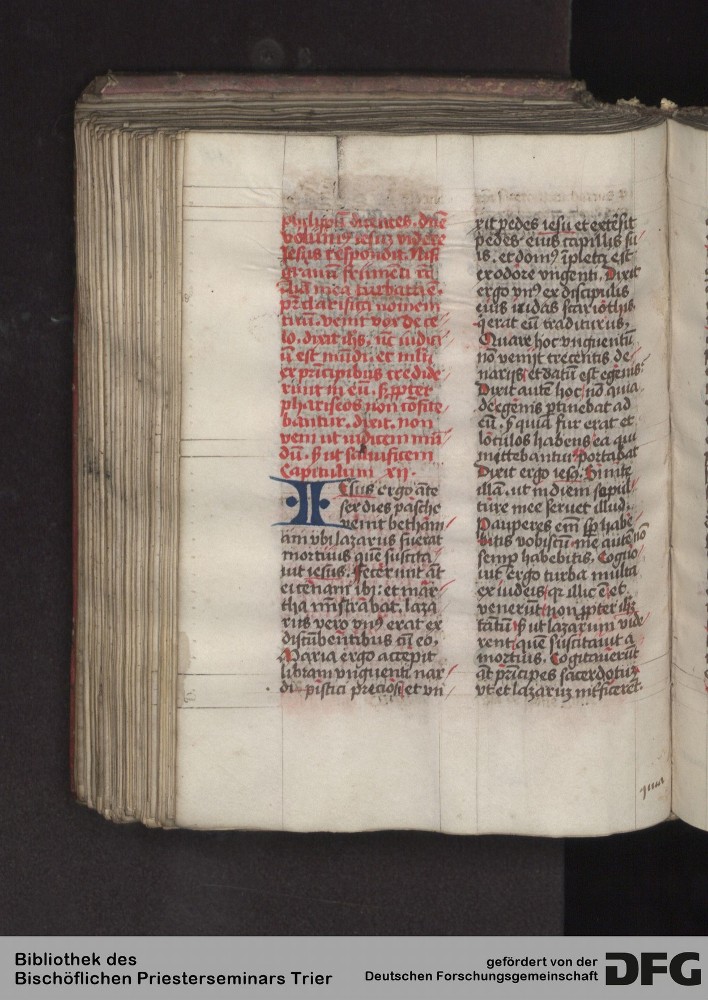 philippū dicentes. dn̄e
volumꝰ iesuz videre
Jesus respondit. Nisi
granū frumēti
aīa mea turbata ē.
pr̄ clarifica nomen
tuū. venit vox de ce
lo. dixit ih̄s, nūc iudiciū
ē est mūdi. et multi
ex principibus credide
runt in eū. sꝫ ꝓpter
phariseos non cōfite
bantur. dixit. non
veni ut iudicem mū
dū. sꝫ ut saluificem
Capitulum xij.
IEsus ergo ante
sex dies pasche
venit bethani
am vbi lazarus fuerat
mortuus quē suscita
uit iesus. Fecerunt āt
ei cenam ibi: et mar
tha ministrabat. laza
rus vero vnꝰ erat ex
discūbentibus cū eo.
Maria ergo accepit
libram vnguenti nar
di pistici preciosi et vn
xit pedes iesu et extersit
pedes eius capillis su
is. et domꝰ īpleta est
ex odore vngenti. Dixit
ergo vnꝰ ex discipulis
eius iudas scariothis
q̄ erat eū traditurus,
Quare hoc vnguentū
nō venijt trecentis de
narijs et datū est egenis:
Dixit autē hoc nō quia
de egenis ꝑtinebat ad
eū. sꝫ quia fur erat et
loculos habens ea que
mittebantur portabat
Dixit ergo iesꝰ. Sinite
illā. ut in diem sepul
ture mee seruet illud.
Pauperes em̄ sp̄ habe
bitis vobiscū me autē nō
semp̄ habebitis. Cogno
uit ergo turba multa
ex iudeis qꝫ illic ē et
venerūt non ꝓpter ih̄m
tātū sꝫ ut lazarum vide
rent quē suscitauit a
mortuis. Cogitauerūt
āt principes sacerdotuꝫ
vt et lazaruꝫ int̄ficerēt.
Bibliothek des
Bischöflichen Priesterseminars Trier
gefördert von der
Deutschen Forschungsgemeinschaft
DFG